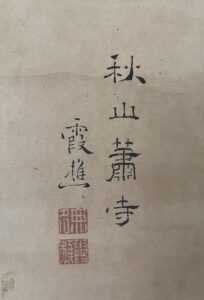 秋山蕭寺
霞樵